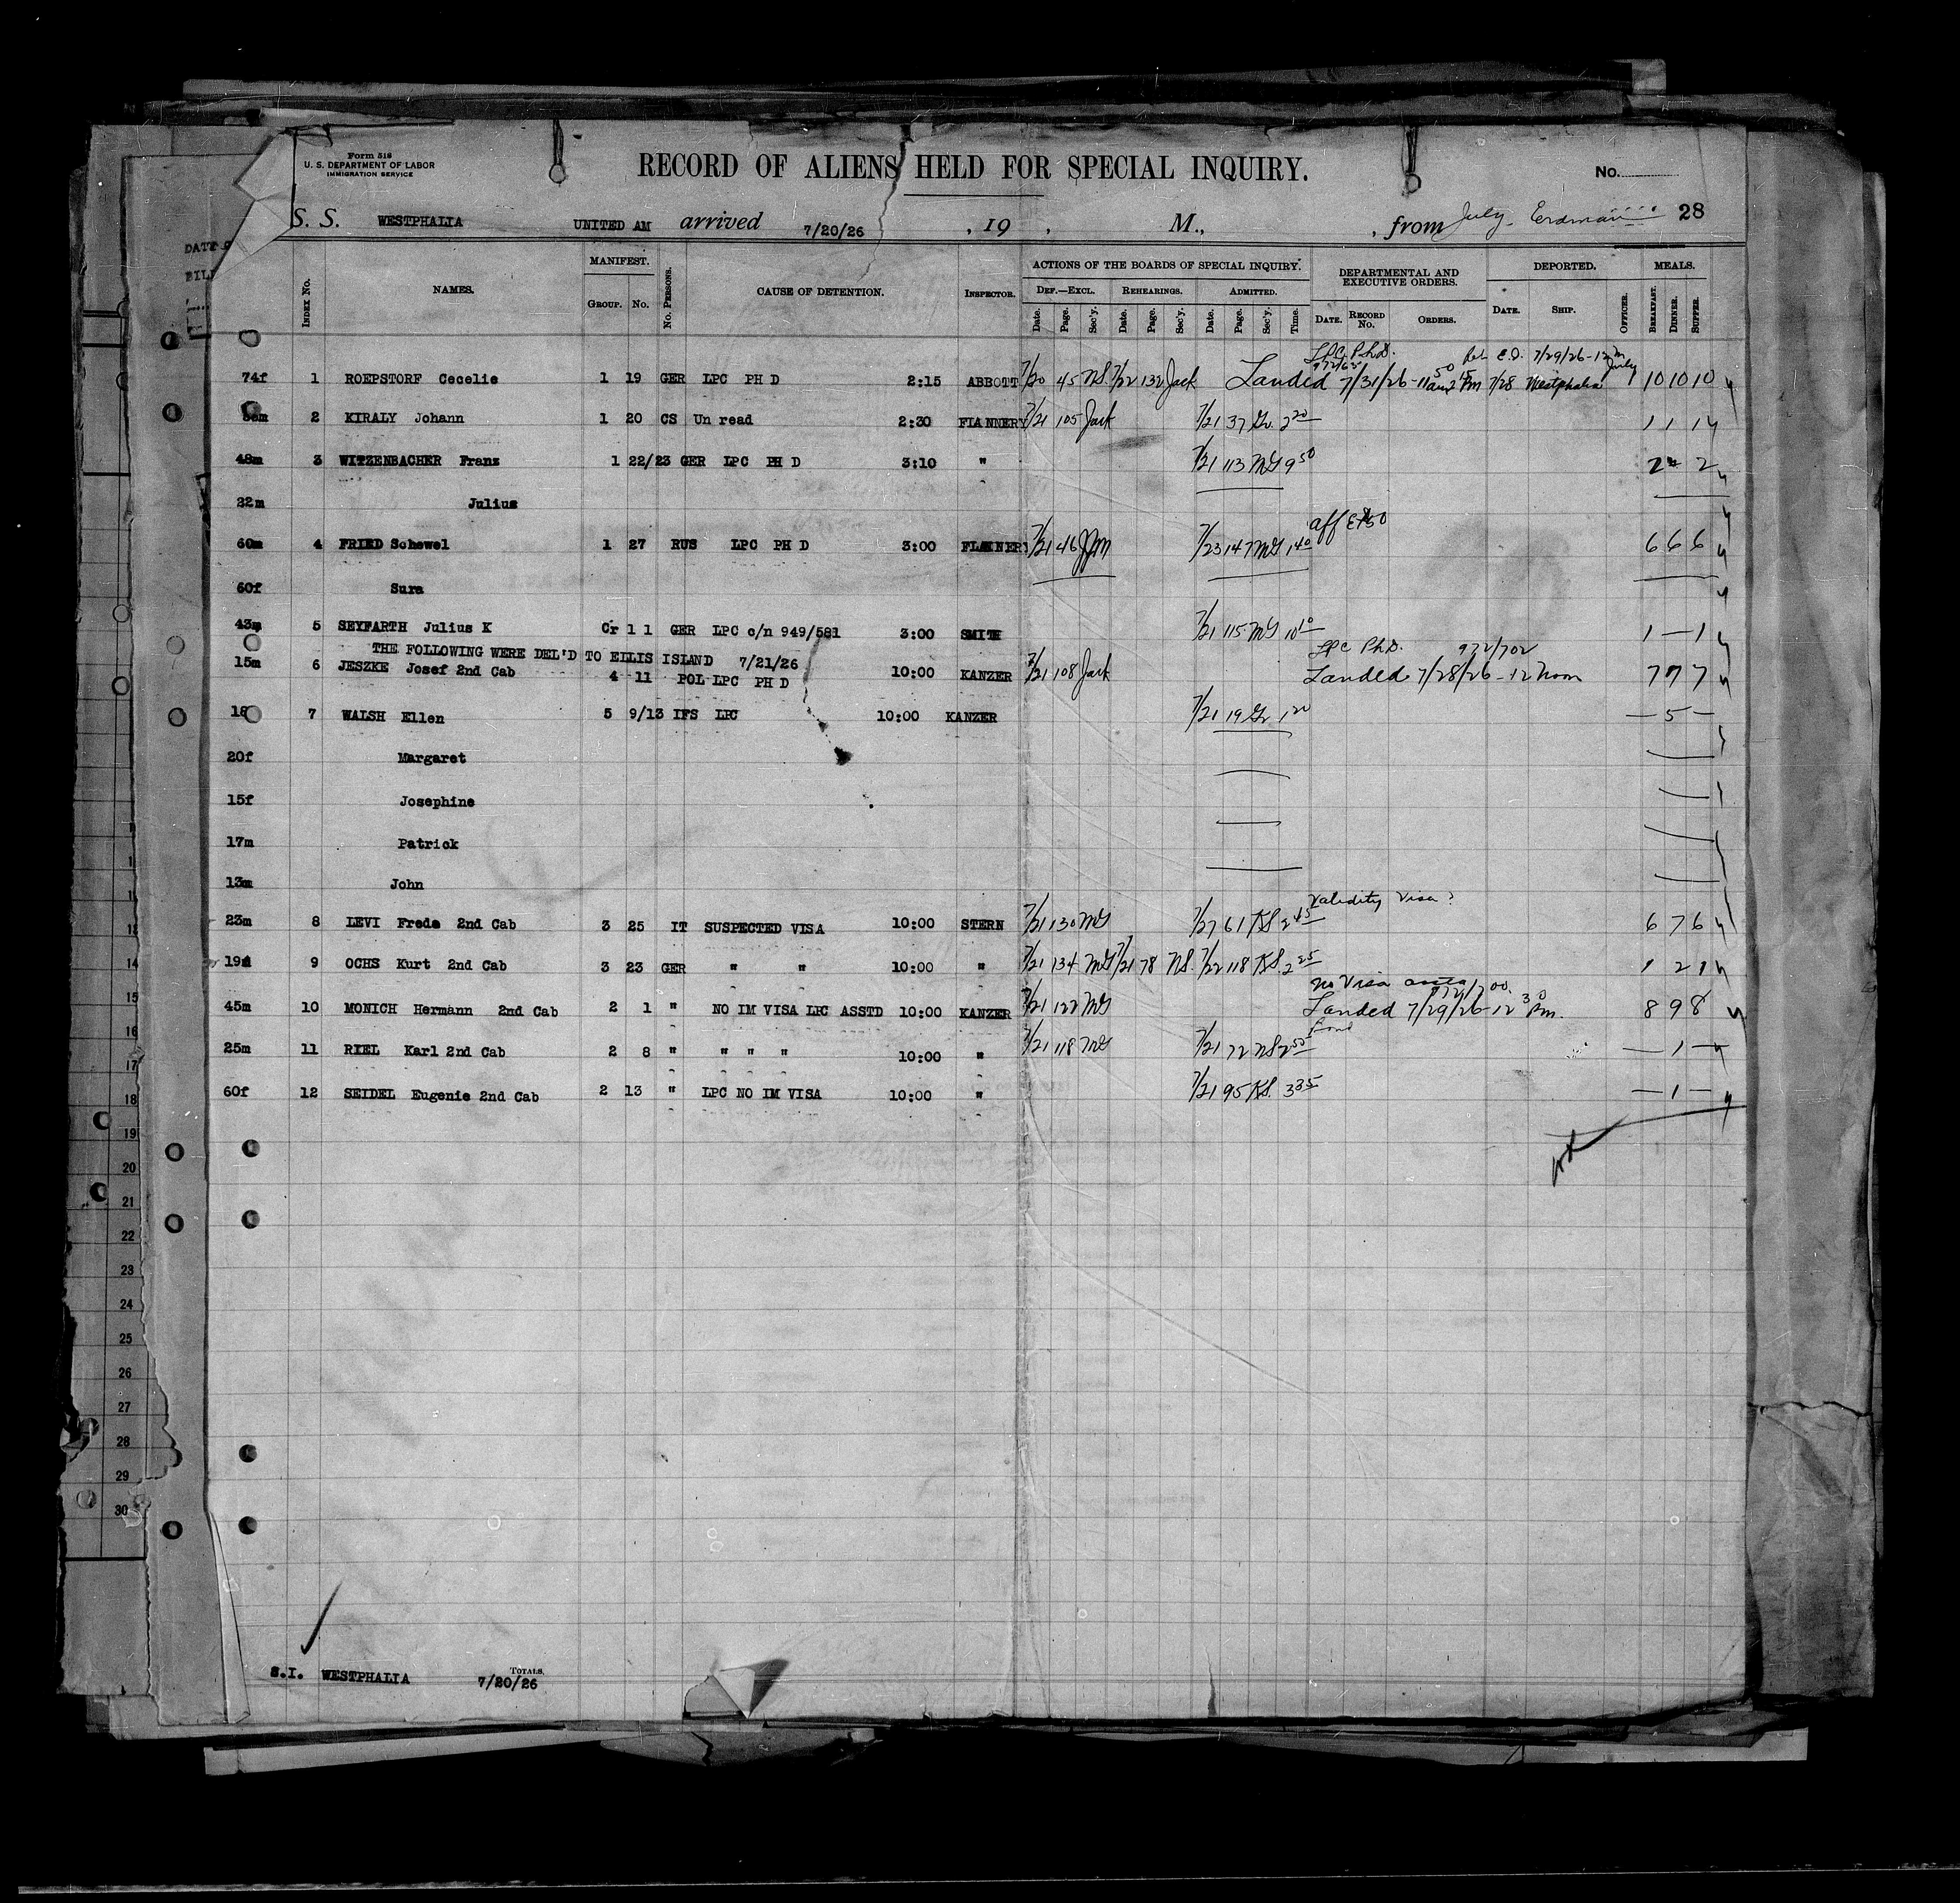 Form 518
U. S. DEPARTMENT OF LABOR
IMMIGRATION SERVICE
RECORD OF ALIENS HELD FOR SPECIAL INQUIRY.
No.
S. S. WESTPHALIA UNITED AM arrived 7/20/26 , 19 , M., , from July Erdman 28
INDEX No. NAMES. MANIFEST. GROUP. No. No. PERSONS. CAUSE OF DETENTION. INSPECTOR. ACTIONS OF THE BOARDS OF SPECIAL INQUIRY. DEPARTMENTAL AND EXECUTIVE ORDERS. DEPORTED. MEALS.
DEF.—EXCL. REHEARINGS. ADMITTED.
Date. Page. Sec'y. Date. Page. Sec'y. Date. Page. Sec'y. Time. DATE. RECORD No. ORDERS. DATE. SHIP. OFFICER. BREAKFAST. DINNER. SUPPER.
LPC PhD. 7/29/26-12
74f 1 ROEPSTORF Cecelie 1 19 GER LPC PH D 2:15 ABBOTT 7/20 45 NS 7/22 132 Jack Landed 7/31/26 7/28 Westphalia July 10 10 10
2 KIRALY Johann 1 20 CS Un read 2:30 FLANNERY 7/21 105 Jack 7/21 37 Gr. 2 20 1 1 1
48m 3 WITZENBACHER Franz 1 22/23 GER LPC PH D 3:10 " 7/21 113 MG 9 50 2 2
22m Julius
aff
60m 4 FRIED Schewel 1 27 RUS LPC PH D 3:00 FLANNERY 7/21 46 JJM 7/23 147 MG 1 40 6 6 6
60f Sura
43m 5 SEYFARTH Julius K Cr 1 1 GER LPC c/n 949/581 3:00 SMITH 7/21 115 MG 10 10 1 — 1
THE FOLLOWING WERE DEL'D TO ELLIS ISLAND 7/21/26 LPC PhD. 972/702
15m 6 JESZKE Josef 2nd Cab 4 11 POL LPC PH D 10:00 KANZER 7/21 108 Jack Landed 7/28/26 - 12 Noon 7 7 7
18 7 WALSH Ellen 5 9/13 IFS LPC 10:00 KANZER 7/21 19 Gr 1 20 — 5 —
20f Margaret
15f Josephine
17m Patrick
13m John
Validity Visa ?
23m 8 LEVI Frede 2nd Cab 3 25 IT SUSPECTED VISA 10:00 STERN 7/21 130 MG 7/27 61 KS 2 45 6 7 6
19 9 OCHS Kurt 2nd Cab 3 23 GER " " 10:00 " 7/21 134 MG 7/21 78 NS. 7/22 118 KS. 2 25 1 2 1
No Visa
45m 10 MONICH Hermann 2nd Cab 2 1 " NO IM VISA LPC ASSTD 10:00 KANZER 7/21 122 MG Landed 7/29/26 - 12 30 Pm. 8 9 8
25m 11 RIEL Karl 2nd Cab 2 8 " " " " 10:00 " 7/21 118 MG 7/21 72 NS 2 55 — 1 —
60f 12 SEIDEL Eugenie 2nd Cab 2 13 " LPC NO IM VISA 10:00 " 7/21 95 KS. 3 35 — 1 —
14
15
16
17
18
19
20
21
22
23
24
25
26
27
28
29
30
TOTALS.
S.I. WESTPHALIA 7/20/26